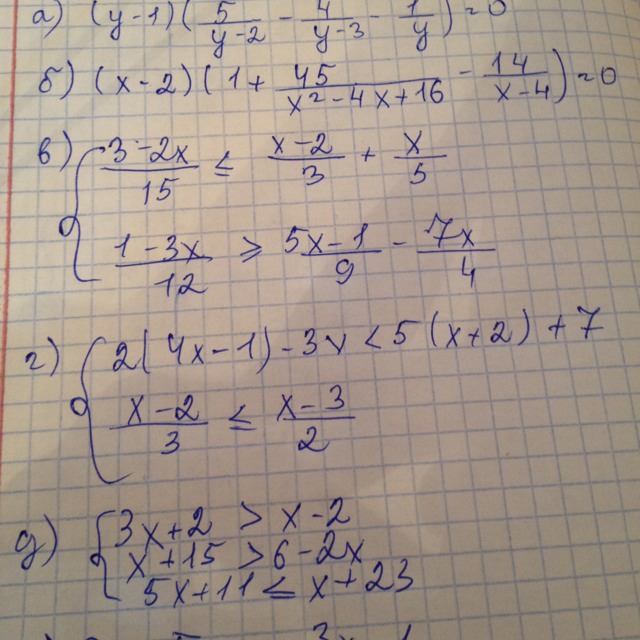 а) (y-1)(5/(y-2) - 4/(y-3) - 1/y) = 0
б) (x-2)(1 + 45/(x²-4x+16) - 14/(x-4)) = 0
в) { (3-2x)/15 ≤ (x-2)/3 + x/5
(1-3x)/12 ≥ (5x-1)/9 - 7x/4
г) { 2(4x-1) - 3x < 5(x+2) + 7
(x-2)/3 ≤ (x-3)/2
д) { 3x+2 > x-2
x+15 > 6-2x
5x+11 ≤ x+23